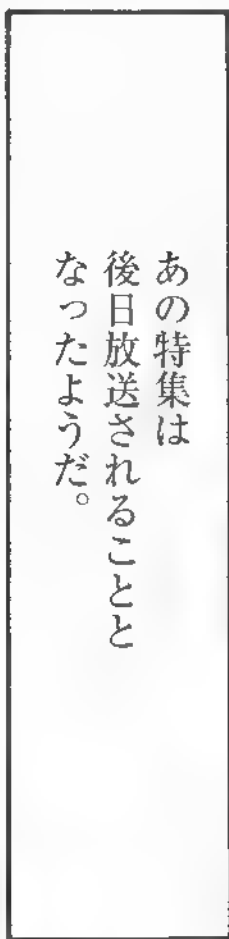 あの特集は
後日放送されることと
なったようだ。